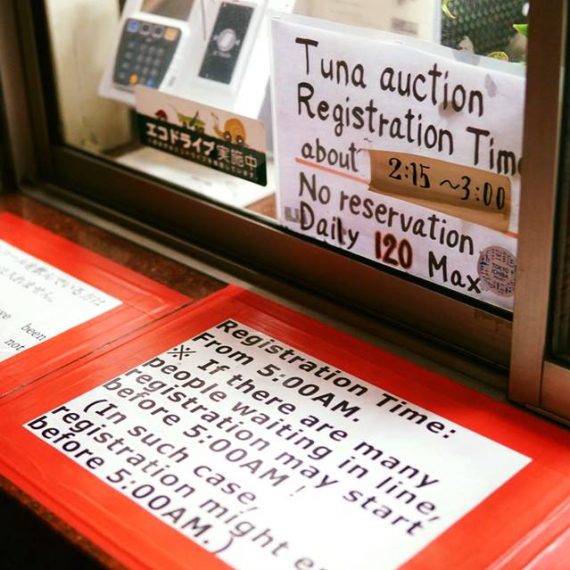 Tuna auction
Registration Tim
about 2:15 ~ 3:00
No reservation
Daily 120 Max
エコドライブ実施中
Registration Time:
From 5:00AM.
※ If there are many
people waiting in line,
registration may start
before 5:00AM !
(In such case,
registration might e
before 5:00AM.)
been
not